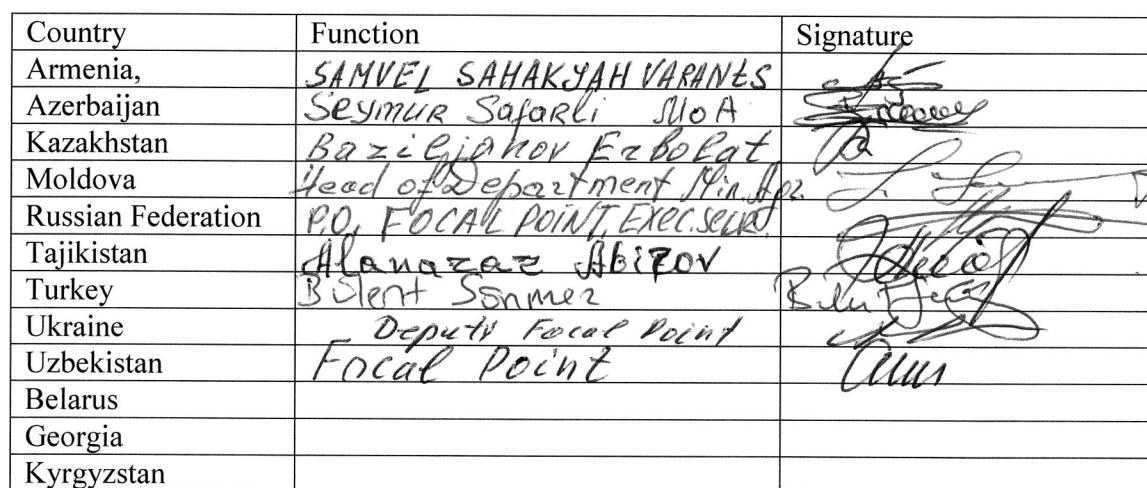 Country Function Signature
Armenia, SAMVEL SAHAKYAH VARANES
Azerbaijan Seymur Safarli MoA
Kazakhstan Baziljanov Erbolat
Moldova Head of Department Min. Agr.
Russian Federation P.O, FOCAL POINT, EXEC.SECR.
Tajikistan Alanazar Abizov
Turkey Bülent Sönmez
Ukraine Deputy Focal Point
Uzbekistan Focal Point
Belarus
Georgia
Kyrgyzstan